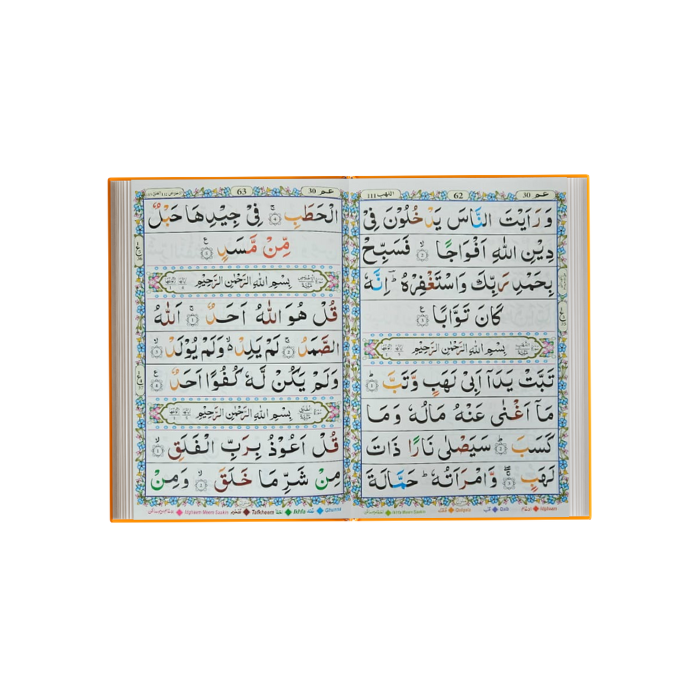 عم 30
62
اللهب 111
وَرَاَيْتَ النَّاسَ يَدْخُلُوْنَ فِىْ
دِيْنِ اللّٰهِ اَفْوَاجًا ۙ فَسَبِّحْ
بِحَمْدِ رَبِّكَ وَاسْتَغْفِرْهُ ؕ اِنَّهٗ
كَانَ تَوَّابًا
بِسْمِ اللّٰهِ الرَّحْمٰنِ الرَّحِيْمِ
تَبَّتْ يَدَاۤ اَبِىْ لَهَبٍ وَّتَبَّ ؕ
مَاۤ اَغْنٰى عَنْهُ مَالُهٗ وَمَا
كَسَبَ ؕ سَيَصْلٰى نَارًا ذَاتَ
لَهَبٍ ۚ وَّامْرَاَتُهٗ ؕ حَمَّالَةَ
Ikhfa Meem Saakin
Qalqala
Qalb
Idghaam
عم 30
63
الْحَطَبِ ۚ فِىْ جِيْدِهَا حَبْلٌ
مِّنْ مَّسَدٍ
بِسْمِ اللّٰهِ الرَّحْمٰنِ الرَّحِيْمِ
قُلْ هُوَ اللّٰهُ اَحَدٌ ۚ اَللّٰهُ
الصَّمَدُ ۚ لَمْ يَلِدْ ۙ وَلَمْ يُوْلَدْ ۙ
وَلَمْ يَكُنْ لَّهٗ كُفُوًا اَحَدٌ
بِسْمِ اللّٰهِ الرَّحْمٰنِ الرَّحِيْمِ
قُلْ اَعُوْذُ بِرَبِّ الْفَلَقِ ۙ
مِنْ شَرِّ مَا خَلَقَ ۙ وَمِنْ
Idghaam Meem Saakin
Tafkheem
Ikhfa
Ghunna